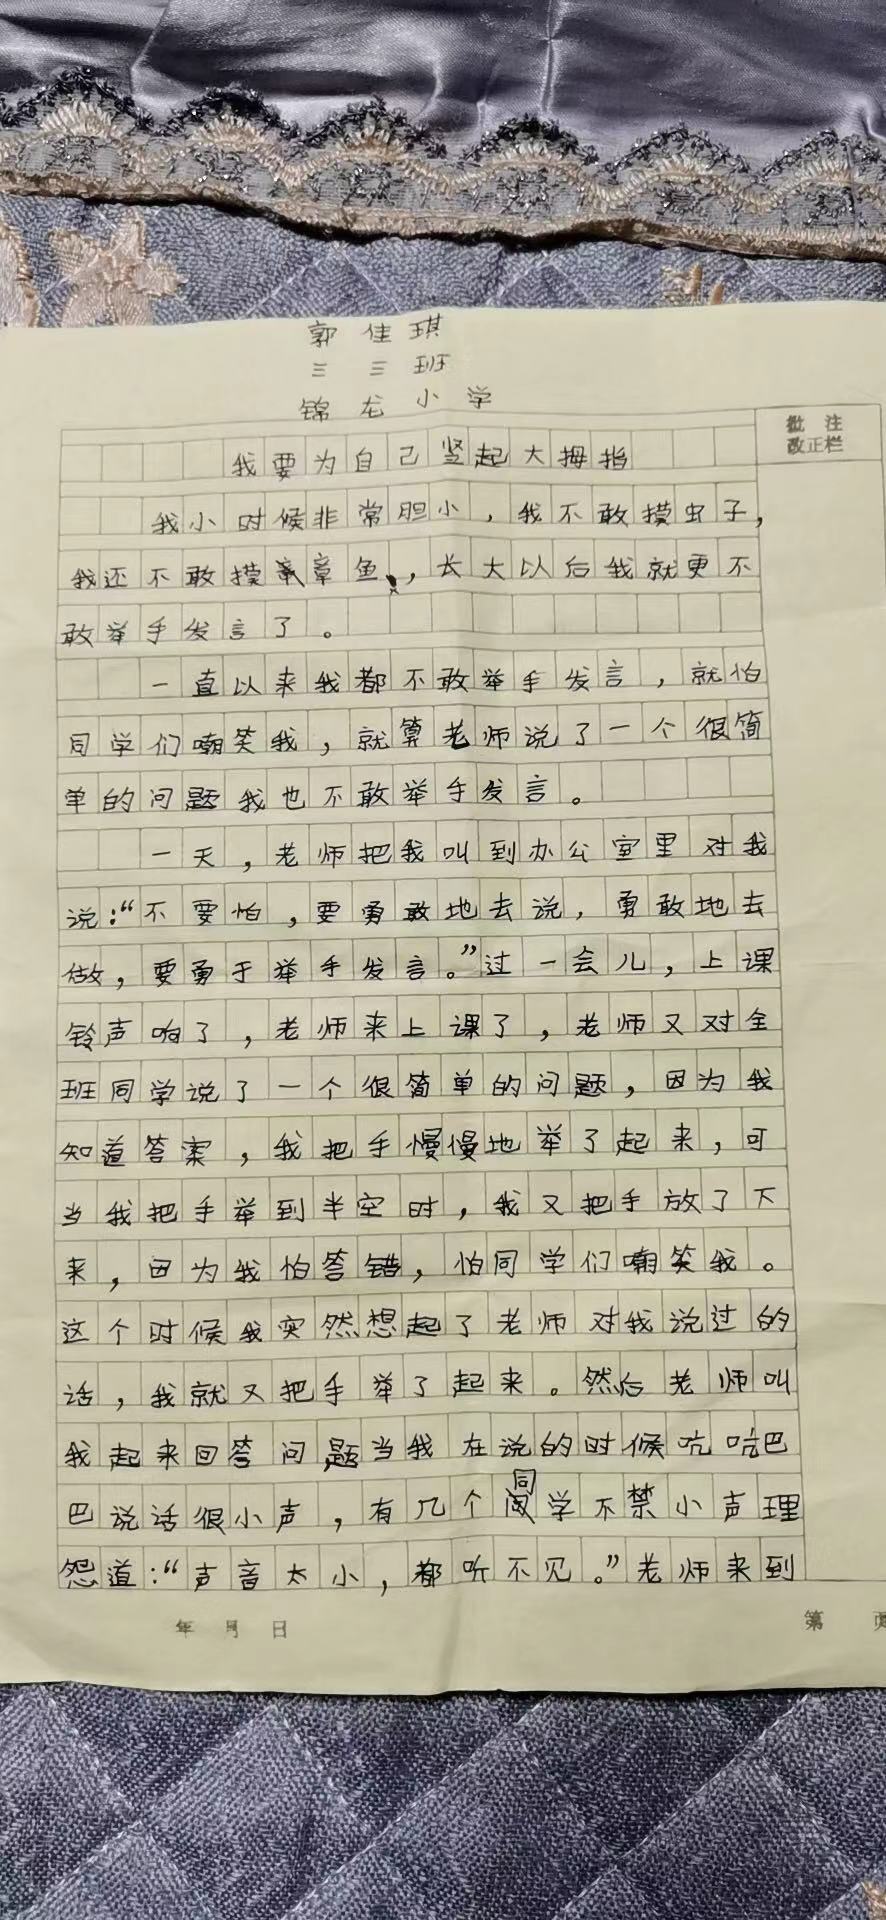 郭佳琪
三三班
锦龙小学
批注
改正栏
我要为自己竖起大拇指
我小时候非常胆小，我不敢摸虫子，
我还不敢摸章鱼，长大以后我就更不
敢举手发言了。
一直以来我都不敢举手发言，就怕
同学们嘲笑我，就算老师说了一个很简
单的问题我也不敢举手发言。
一天，老师把我叫到办公室里对我
说：“不要怕，要勇敢地去说，勇敢地去
做，要勇于举手发言。”过一会儿，上课
铃声响了，老师来上课了，老师又对全
班同学说了一个很简单的问题，因为我
知道答案，我把手慢慢地举了起来，可
当我把手举到半空时，我又把手放了下
来，因为我怕答错，怕同学们嘲笑我。
这个时候我突然想起了老师对我说过的
话，我就又把手举了起来。然后老师叫
我起来回答问题当我在说的时候吭吭巴
巴说话很小声，有几个同学不禁小声埋
怨道：“声音太小，都听不见。”老师来到
年 月 日
第 页